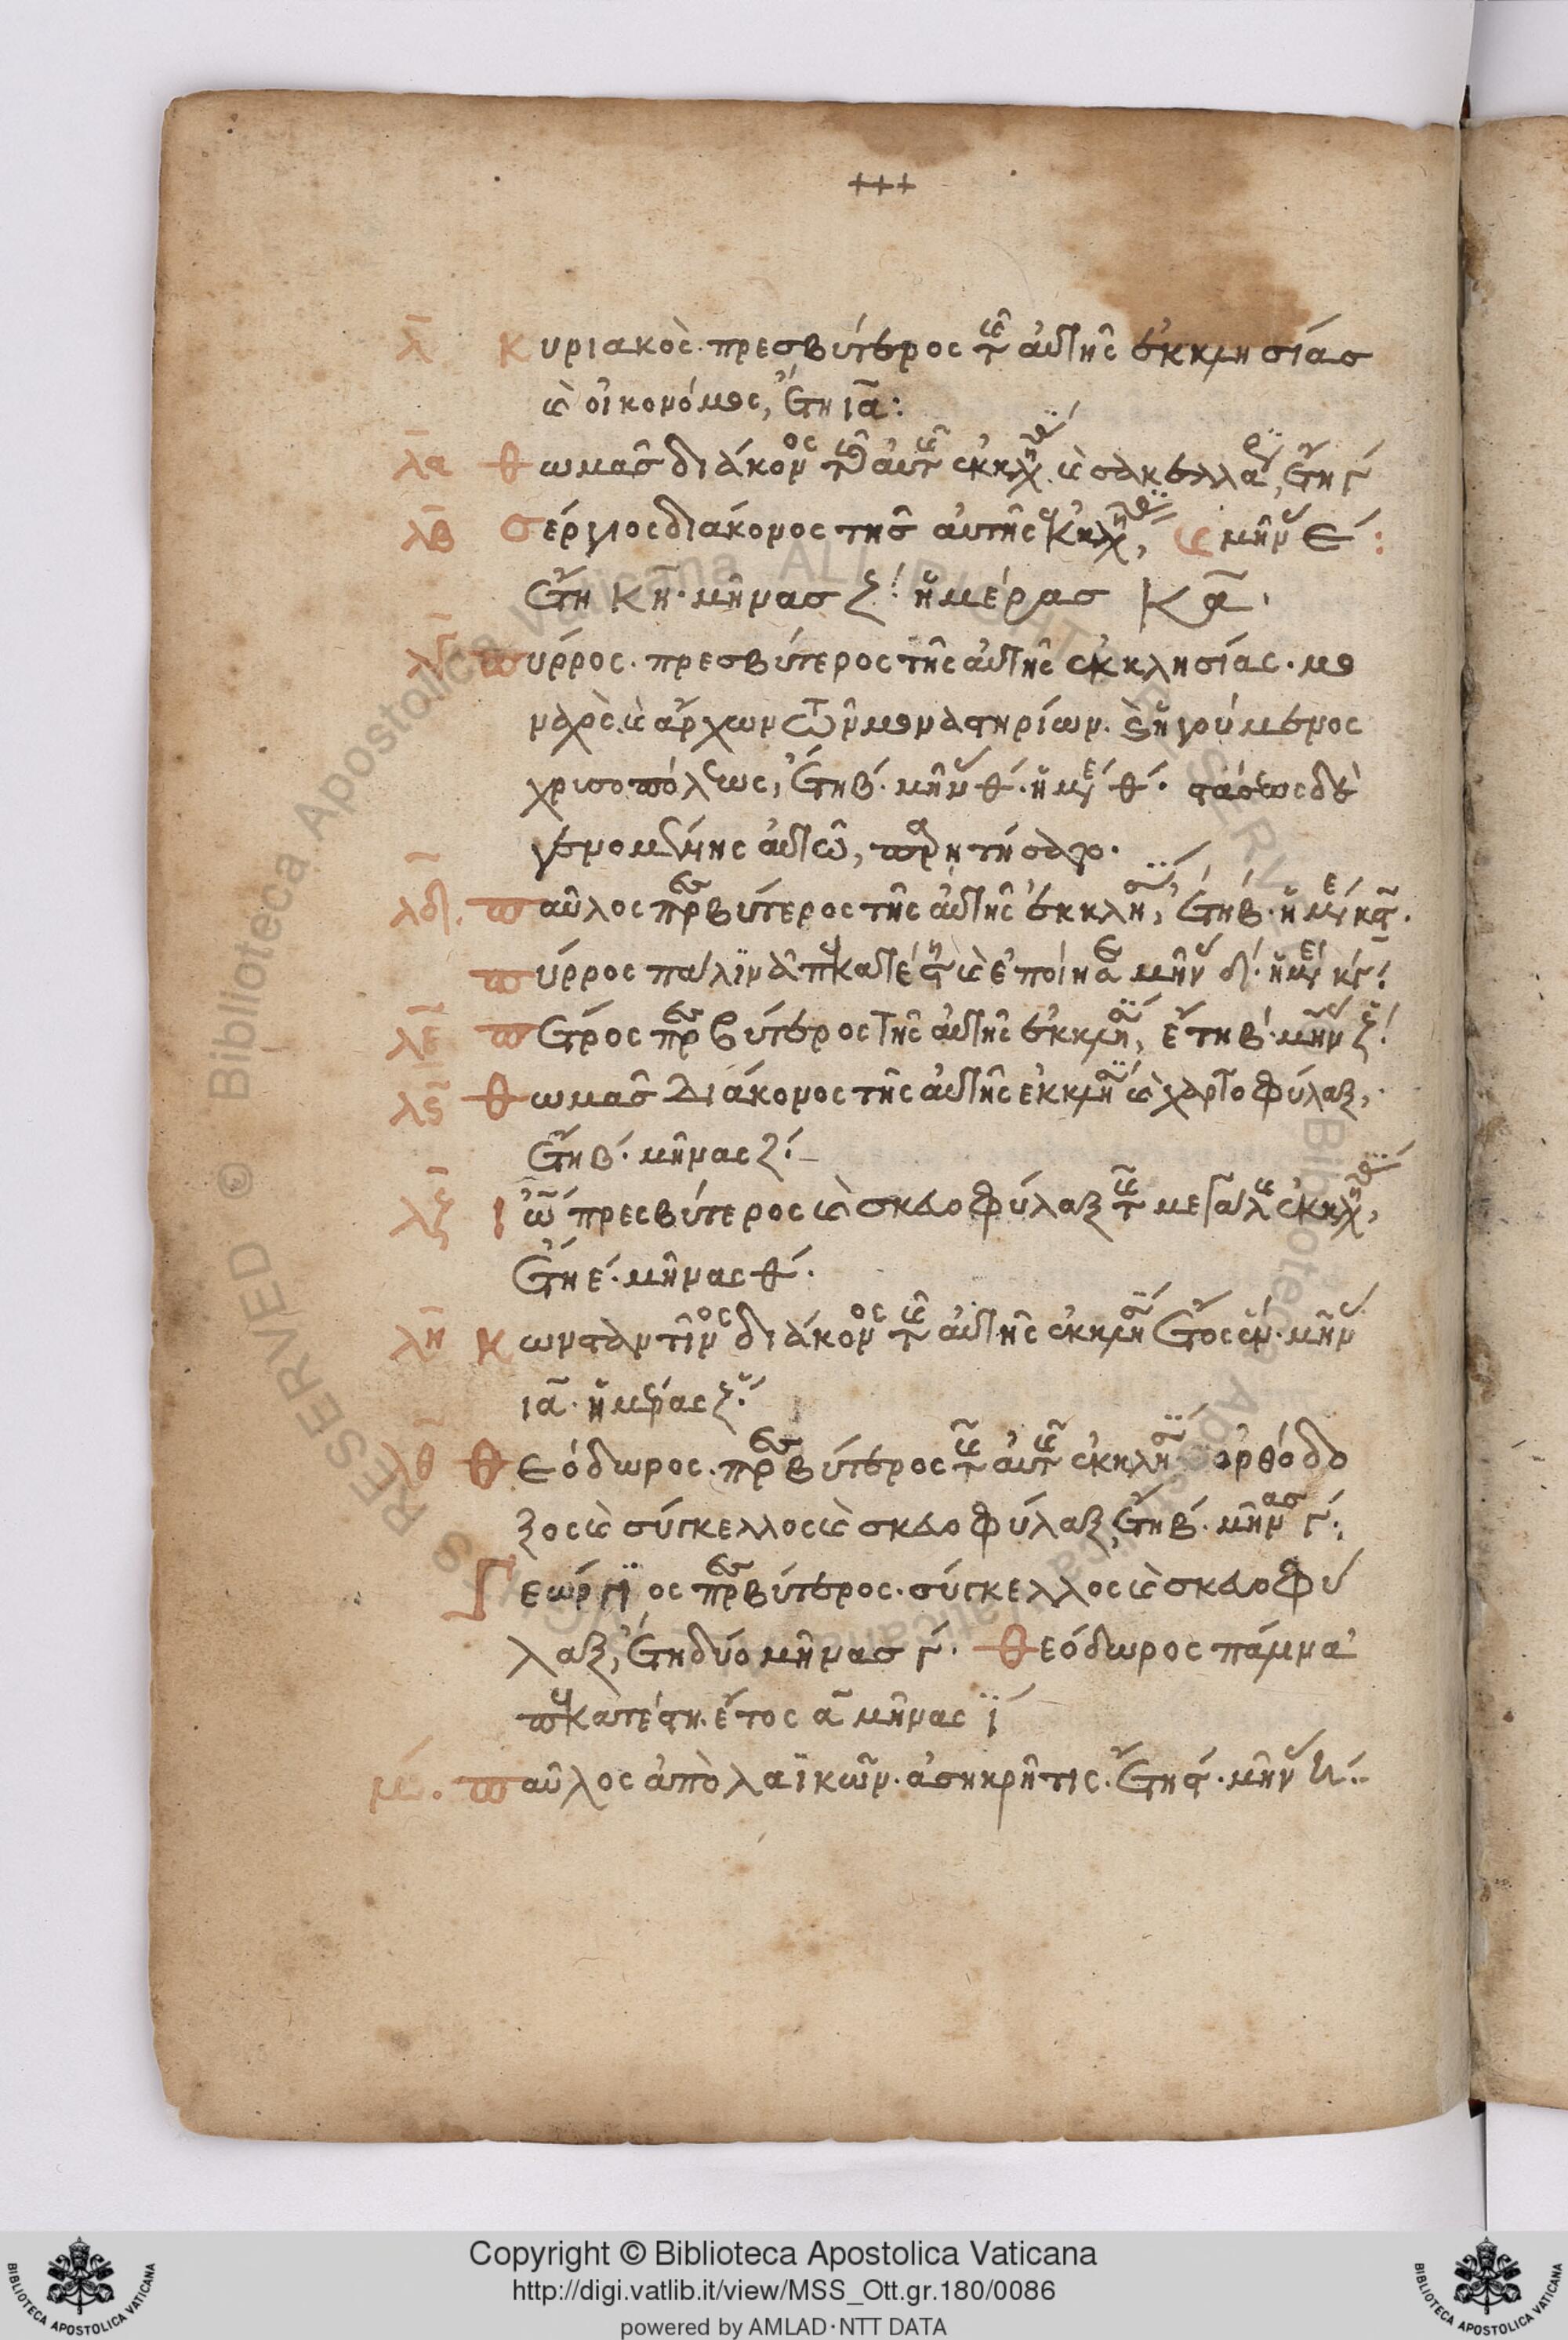 +++
λ Κυριακὸς· πρεσβύτερος τῆς αὐτῆς ἐκκλησίας
καὶ οἰκονόμος, ἔτη ια:
λα Θωμᾶς διάκονος τῆς αὐτῆς ἐκκλη καὶ σακελλα, ἔτη γ
λβ Σέργιος διάκονος τῆς αὐτῆς ἐκκλη, καὶ μῆν
ἔτη κη· μῆνας ζ ἡμέρας κα·
λγ Πύρρος· πρεσβύτερος τῆς αὐτῆς ἐκκλησίας· μο
ναχὸς καὶ ἄρχων τῶν μοναστηρίων. καὶ ἡγούμενος
χρισοπόλεως, ἔτη β· μῆν θ· ἡμε θ· στάσεως δὲ
γενομένης αὐτῶ, παρητήσατο·
λδ. Παῦλος πρεσβύτερος τῆς αὐτῆς ἐκκλη, ἔτη β· ἡμε κϛ.
Πύρρος πάλιν ἀποκατέστη καὶ ἐποίησε μῆν δ· ἡμε κγ:
λε Πέτρος πρεσβύτερος τῆς αὐτῆς ἐκκλη, ἔτη β· μῆν ζ
λϛ Θωμᾶς Διάκονος τῆς αὐτῆς ἐκκλη καὶ χαρτοφύλαξ,
ἔτη β· μῆνας ζ
λζ Ἰω πρεσβύτερος καὶ σκευοφύλαξ τῆς μεγάλης ἐκκλη,
ἔτη ε· μῆνας θ·
λη Κωνσταντῖνος διάκονος τῆς αὐτῆς ἐκκλη ἔτος ἕν· μῆν
ια· ἡμέρας ζ
λθ Θεόδωρος· πρεσβύτερος τῆς αὐτῆς ἐκκλη ὀρθόδο
ξος καὶ σύγκελλος καὶ σκευοφύλαξ, ἔτη β· μῆνας γ·
Γεώργϊος πρεσβύτερος· σύγκελλος καὶ σκευοφύ
λαξ, ἔτη δύο μῆνας γ· Θεόδωρος πάλιν ἀ
ποκατέστη. ἔτος α μῆνας ϊ
μ. Παῦλος ἀπὸ λαϊκῶν· ἀσηκρῆτις. ἔτη ϛ· μῆν
Copyright © Biblioteca Apostolica Vaticana
http://digi.vatlib.it/view/MSS_Ott.gr.180/0086
powered by AMLAD·NTT DATA